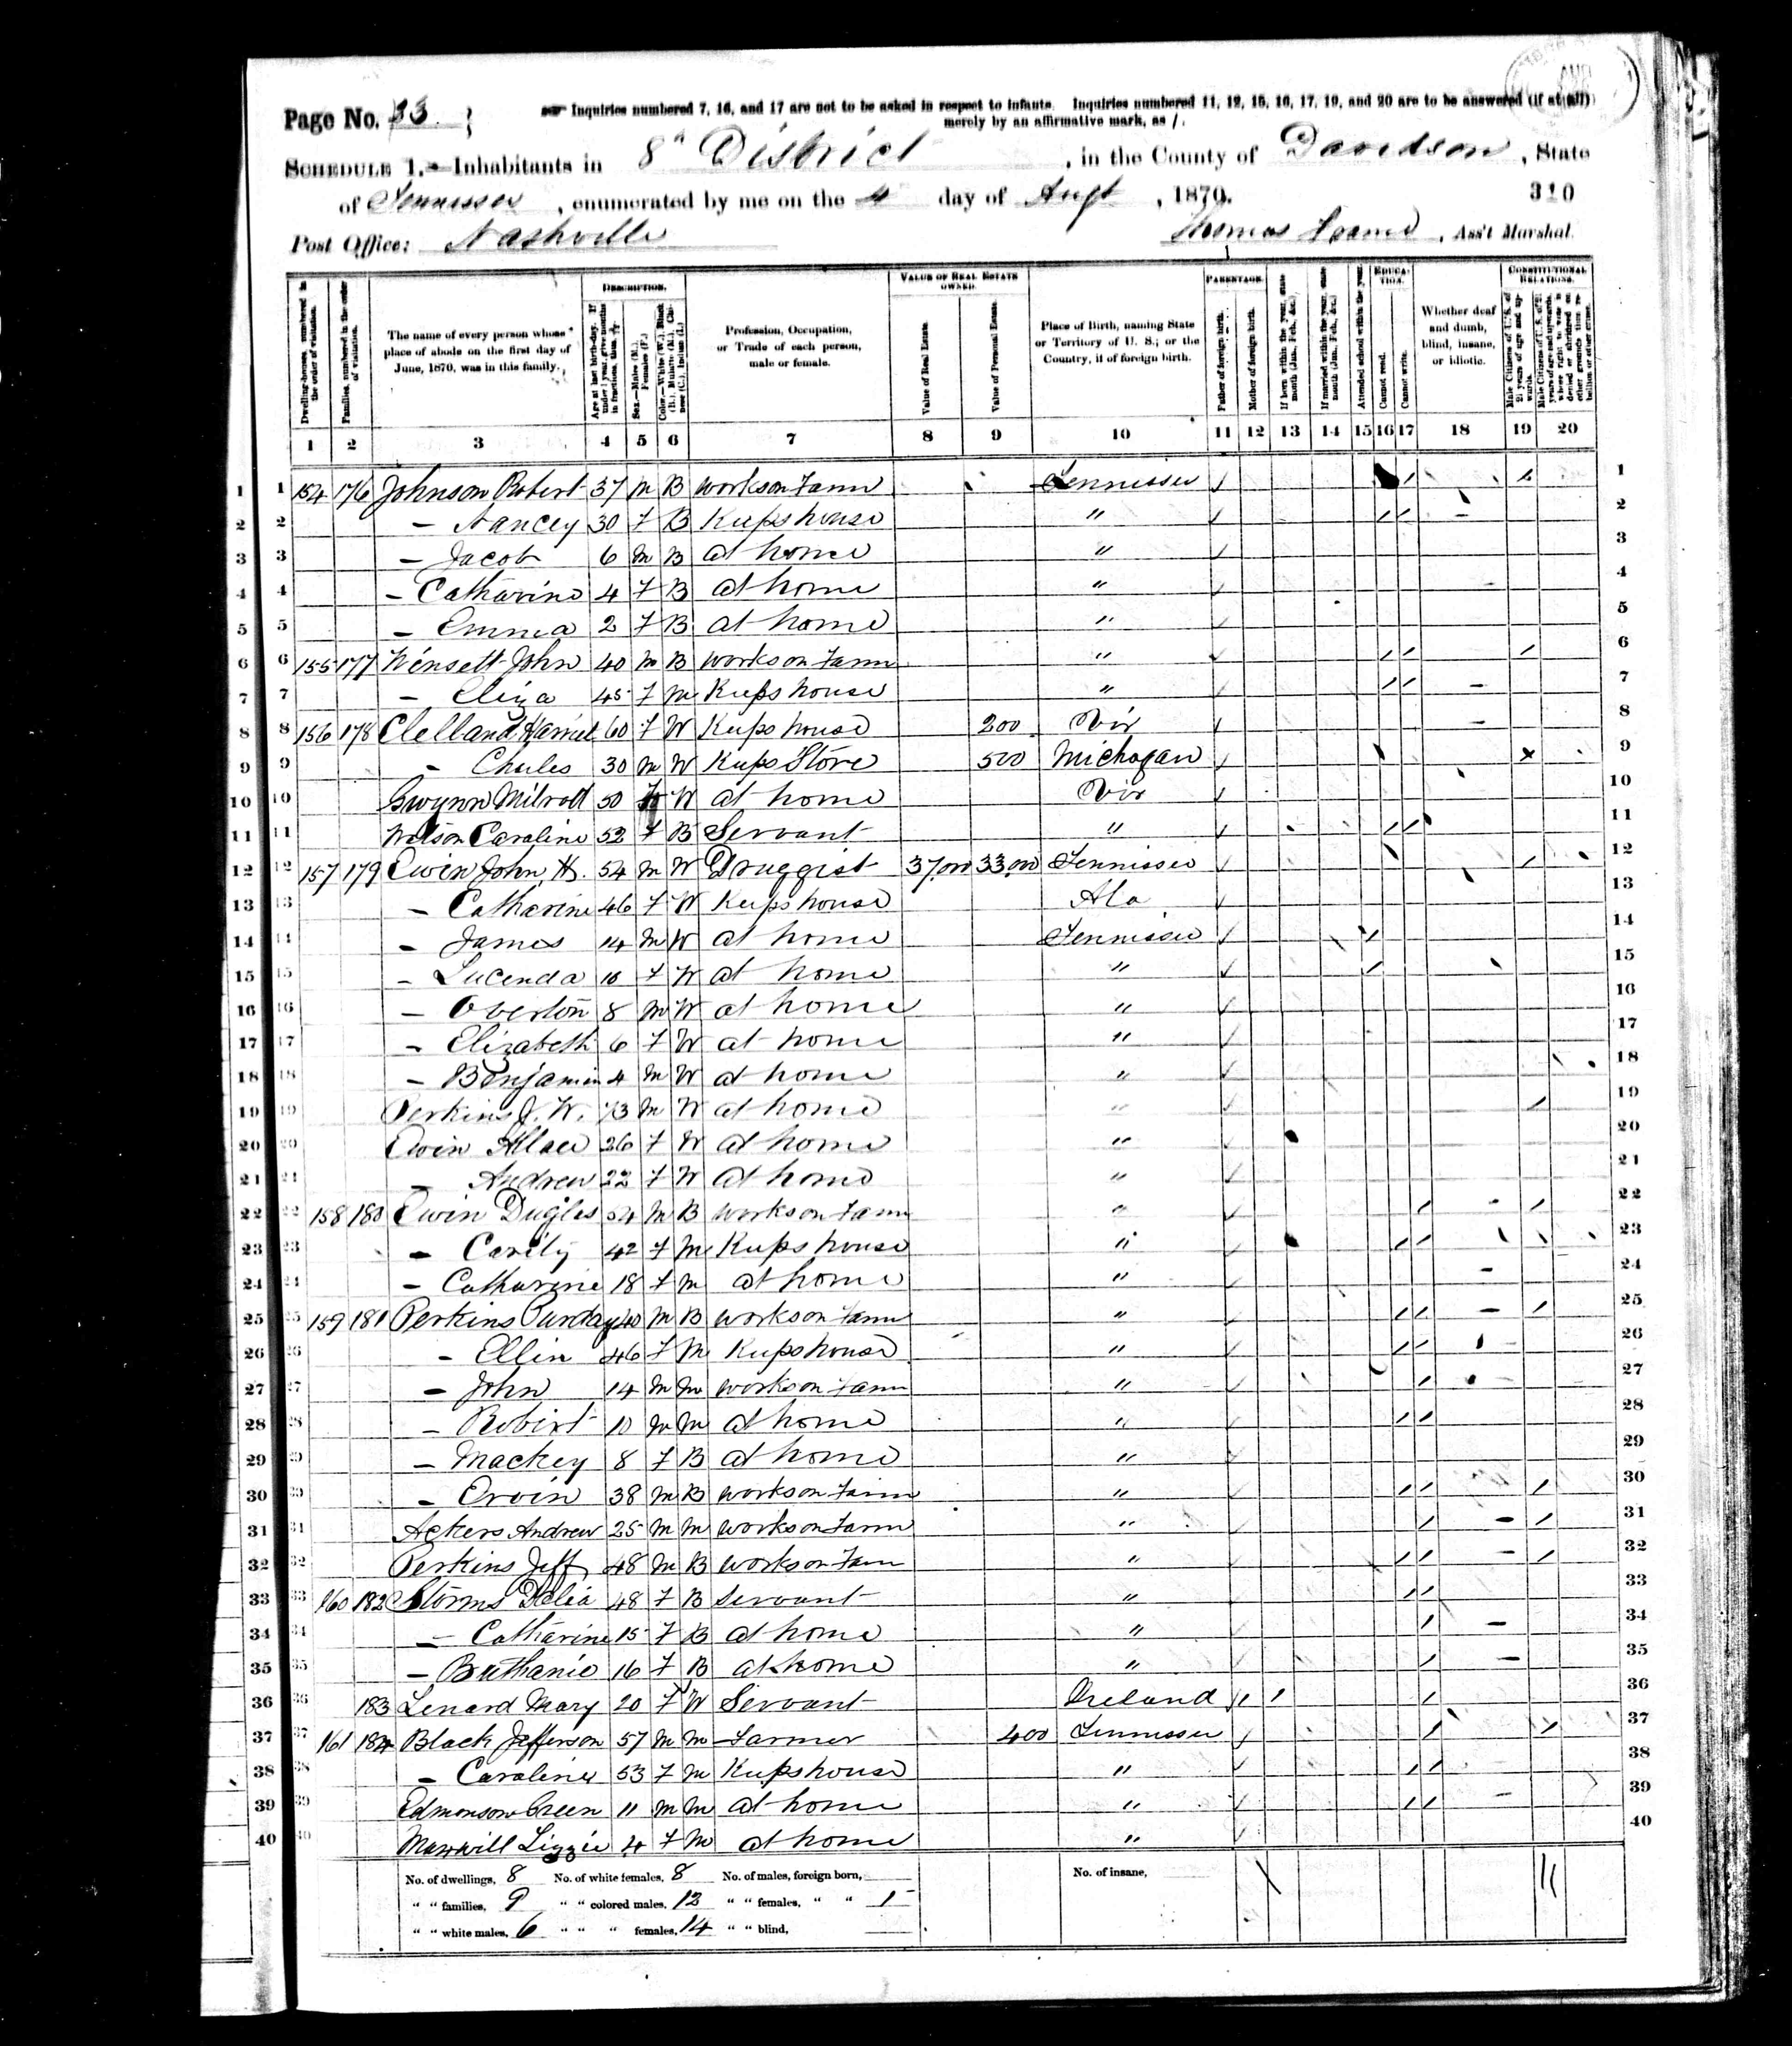 Page No. 33.
Inquiries numbered 7, 16, and 17 are not to be asked in respect to infants. Inquiries numbered 11, 12, 15, 16, 17, 19, and 20 are to be answered (if at all)
merely by an affirmative mark, as /.
SCHEDULE 1.—Inhabitants in 8th District, in the County of Davidson, State
of Tennessee, enumerated by me on the 4 day of Augt, 1870.
310
Post Office: Nashville
Thomas, Ass't Marshal.
Dwelling-houses, numbered in the order of visitation.
Families, numbered in the order of visitation.
The name of every person whose place of abode on the first day of June, 1870, was in this family.
DESCRIPTION.
Age at last birth-day. If under 1 year, give months in fractions, thus, 3/12
Sex.—Males (M.), Females (F.)
Color.—White (W.), Black (B.), Mulatto (M.), Chinese (C.), Indian (I.)
Profession, Occupation, or Trade of each person, male or female.
VALUE OF REAL ESTATE OWNED.
Value of Real Estate.
Value of Personal Estate.
Place of Birth, naming State or Territory of U. S.; or the Country, if of foreign birth.
PARENTAGE.
Father of foreign birth.
Mother of foreign birth.
If born within the year, state month (Jan., Feb., &c.)
If married within the year, state month (Jan., Feb., &c.)
Attended school within the year.
EDUCATION.
Cannot read.
Cannot write.
Whether deaf and dumb, blind, insane, or idiotic.
CONSTITUTIONAL RELATIONS.
Male Citizens of U. S. of 21 years of age and upwards.
Male Citizens of U. S. of 21 years of age and upwards, whose right to vote is denied or abridged on other grounds than rebellion or other crime.
1 2 3 4 5 6 7 8 9 10 11 12 13 14 15 16 17 18 19 20
1 1 154 176 Johnson Robert 37 M B works on Farm Tennessee / / 1
2 2 — Nancey 30 F B Keeps house " / / 2
3 3 — Jacob 6 M B at home " 3
4 4 — Catharine 4 F B at home " 4
5 5 — Emma 2 F B at home " 5
6 6 155 177 Wensett John 40 M B works on Farm " / / / 6
7 7 — Eliza 45 F M Keeps house " / / 7
8 8 156 178 Clelland Harriet 60 F W Keeps house 200 Vir 8
9 9 — Chules 30 M W Keeps Store 500 Michagan x 9
10 10 Gwynn 50 W at home Vir 10
11 11 Wilson Caroline 52 F B Servant " / / 11
12 12 157 179 Ewin John H. 54 M W Druggist 37,000 33,000 Tennessee / 12
13 13 — Catharine 46 F W Keeps house Ala 13
14 14 — James 14 M W at home Tennessee / 14
15 15 — Lucenda 10 F W at home " / 15
16 16 — Overton 8 M W at home " 16
17 17 — Elizabeth 6 F W at home " 17
18 18 — Benjamin 4 M W at home " 18
19 19 Perkins J. W. 73 M W at home " / 19
20 20 Ewin 26 F W at home " 20
21 21 — Andrew 22 F W at home " 21
22 22 158 180 Ewin Dugles 54 M B works on Farm " / / 22
23 23 — Carily 42 F M Keeps house " / / 23
24 24 — Catharine 18 F M at home " 24
25 25 159 181 Perkins 40 M B works on Farm " / / / 25
26 26 — Ellin 46 F M Keeps house " / / 26
27 27 — John 14 M M works on Farm " / 27
28 28 — Robert 10 M M at home " / / 28
29 29 — Mackey 8 F B at home " 29
30 30 — Ervin 38 M B works on Farm " / / / 30
31 31 Ackers Andrew 25 M M works on Farm " / / 31
32 32 Perkins Jeff 48 M B works on Farm " / / / 32
33 33 160 182 Storms Delia 48 F B Servant " / / 33
34 34 — Catharine 15 F B at home " / 34
35 35 — Buthanie 16 F B at home " / 35
36 36 183 Lenard Mary 20 F W Servant Ireland / / / 36
37 37 161 184 Black Jefferson 57 M M Farmer 400 Tennessee / / 37
38 38 — Caroline 53 F M Keeps house " / / 38
39 39 Edmonson Green 11 M M at home " / / 39
40 40 Maxwill Lizzie 4 F M at home " 40
No. of dwellings, 8 No. of white females, 8 No. of males, foreign born, No. of insane, 11
" " families, 9 " " colored males, 12 " " females, " " 1
" " white males, 6 " " " females, 14 " " blind,